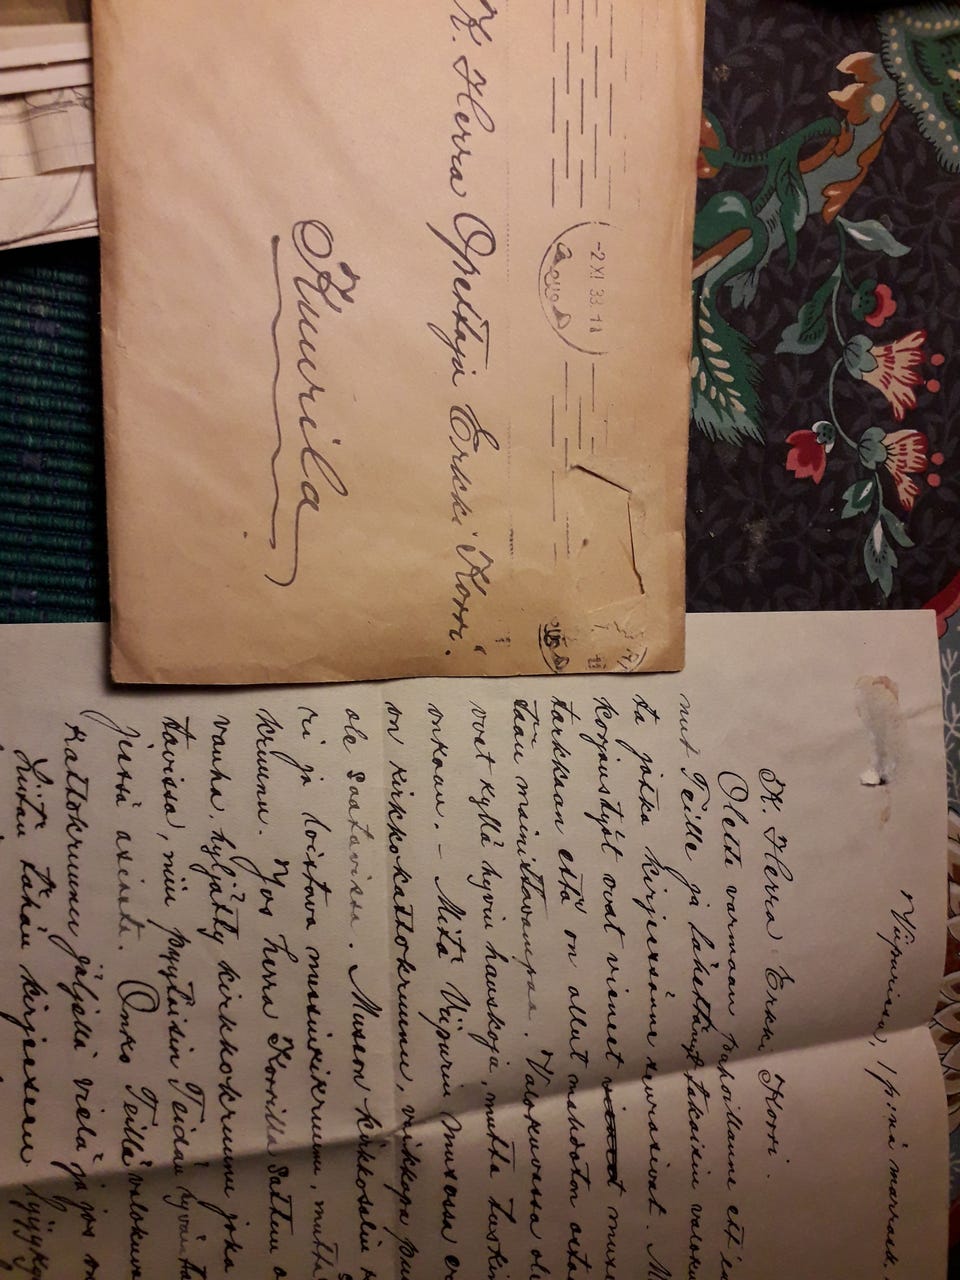 -2.XI.33.-11
K. Herra Opettaja Erkki Korri.
Kuurila
Viipurissa, 1 p:nä marrask.
K. Herra Erkki Korri.
Olette varmaan pahoillanne et
nut Teille ja lähettänyt takaisin valoku
ta jotka kirjeessänne seurasivat. M
korjaustyöt ovat vieneet muse
tarkkaan että on ollut mahdoton ottaa
tään mainittavampaa. Valokuvassa ole
vat kyllä hyvin hauskoja, mutta tuskin
onkaan. - Mitä Viipurin museossa
on kirkkokattokruunu,
ole saatavissa. Museon kirkkosalin
ri ja loistava messinkikruunu, mutta
kruunu. Jos herra Korrilla sattuu o
vanha, hyljätty kirkkokruunu joka
tavissa, niin pyytäisin Teidän hyvän ta
jessä asiasta. Onko Teillä valokuva
kattokruunu jäljellä vielä ja jos
Liitän tähän kirjeeseen